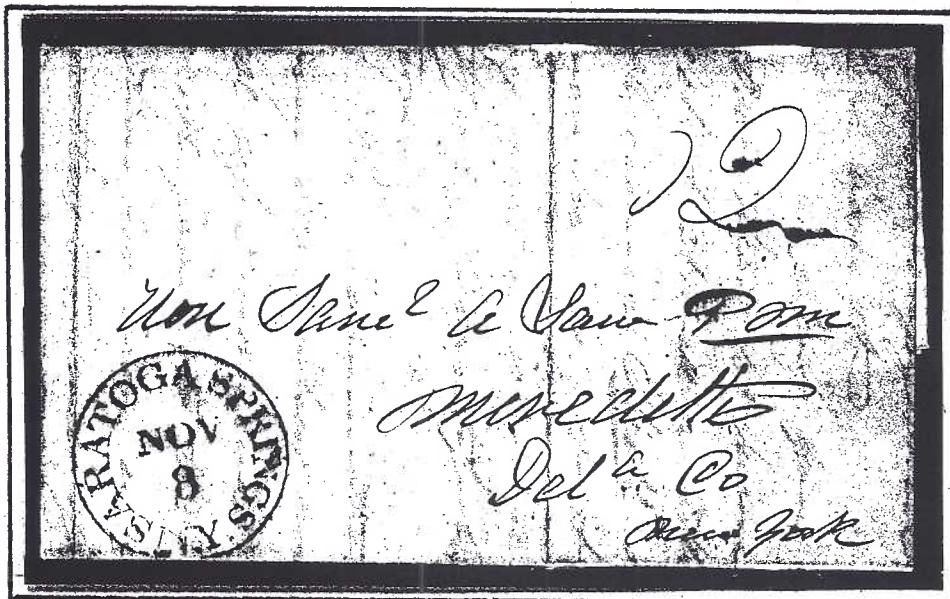 12
Hon Sam^l A Law P m
Meredith
Del^a Co
New York
SARATOGA SPRINGS N.Y
NOV
8